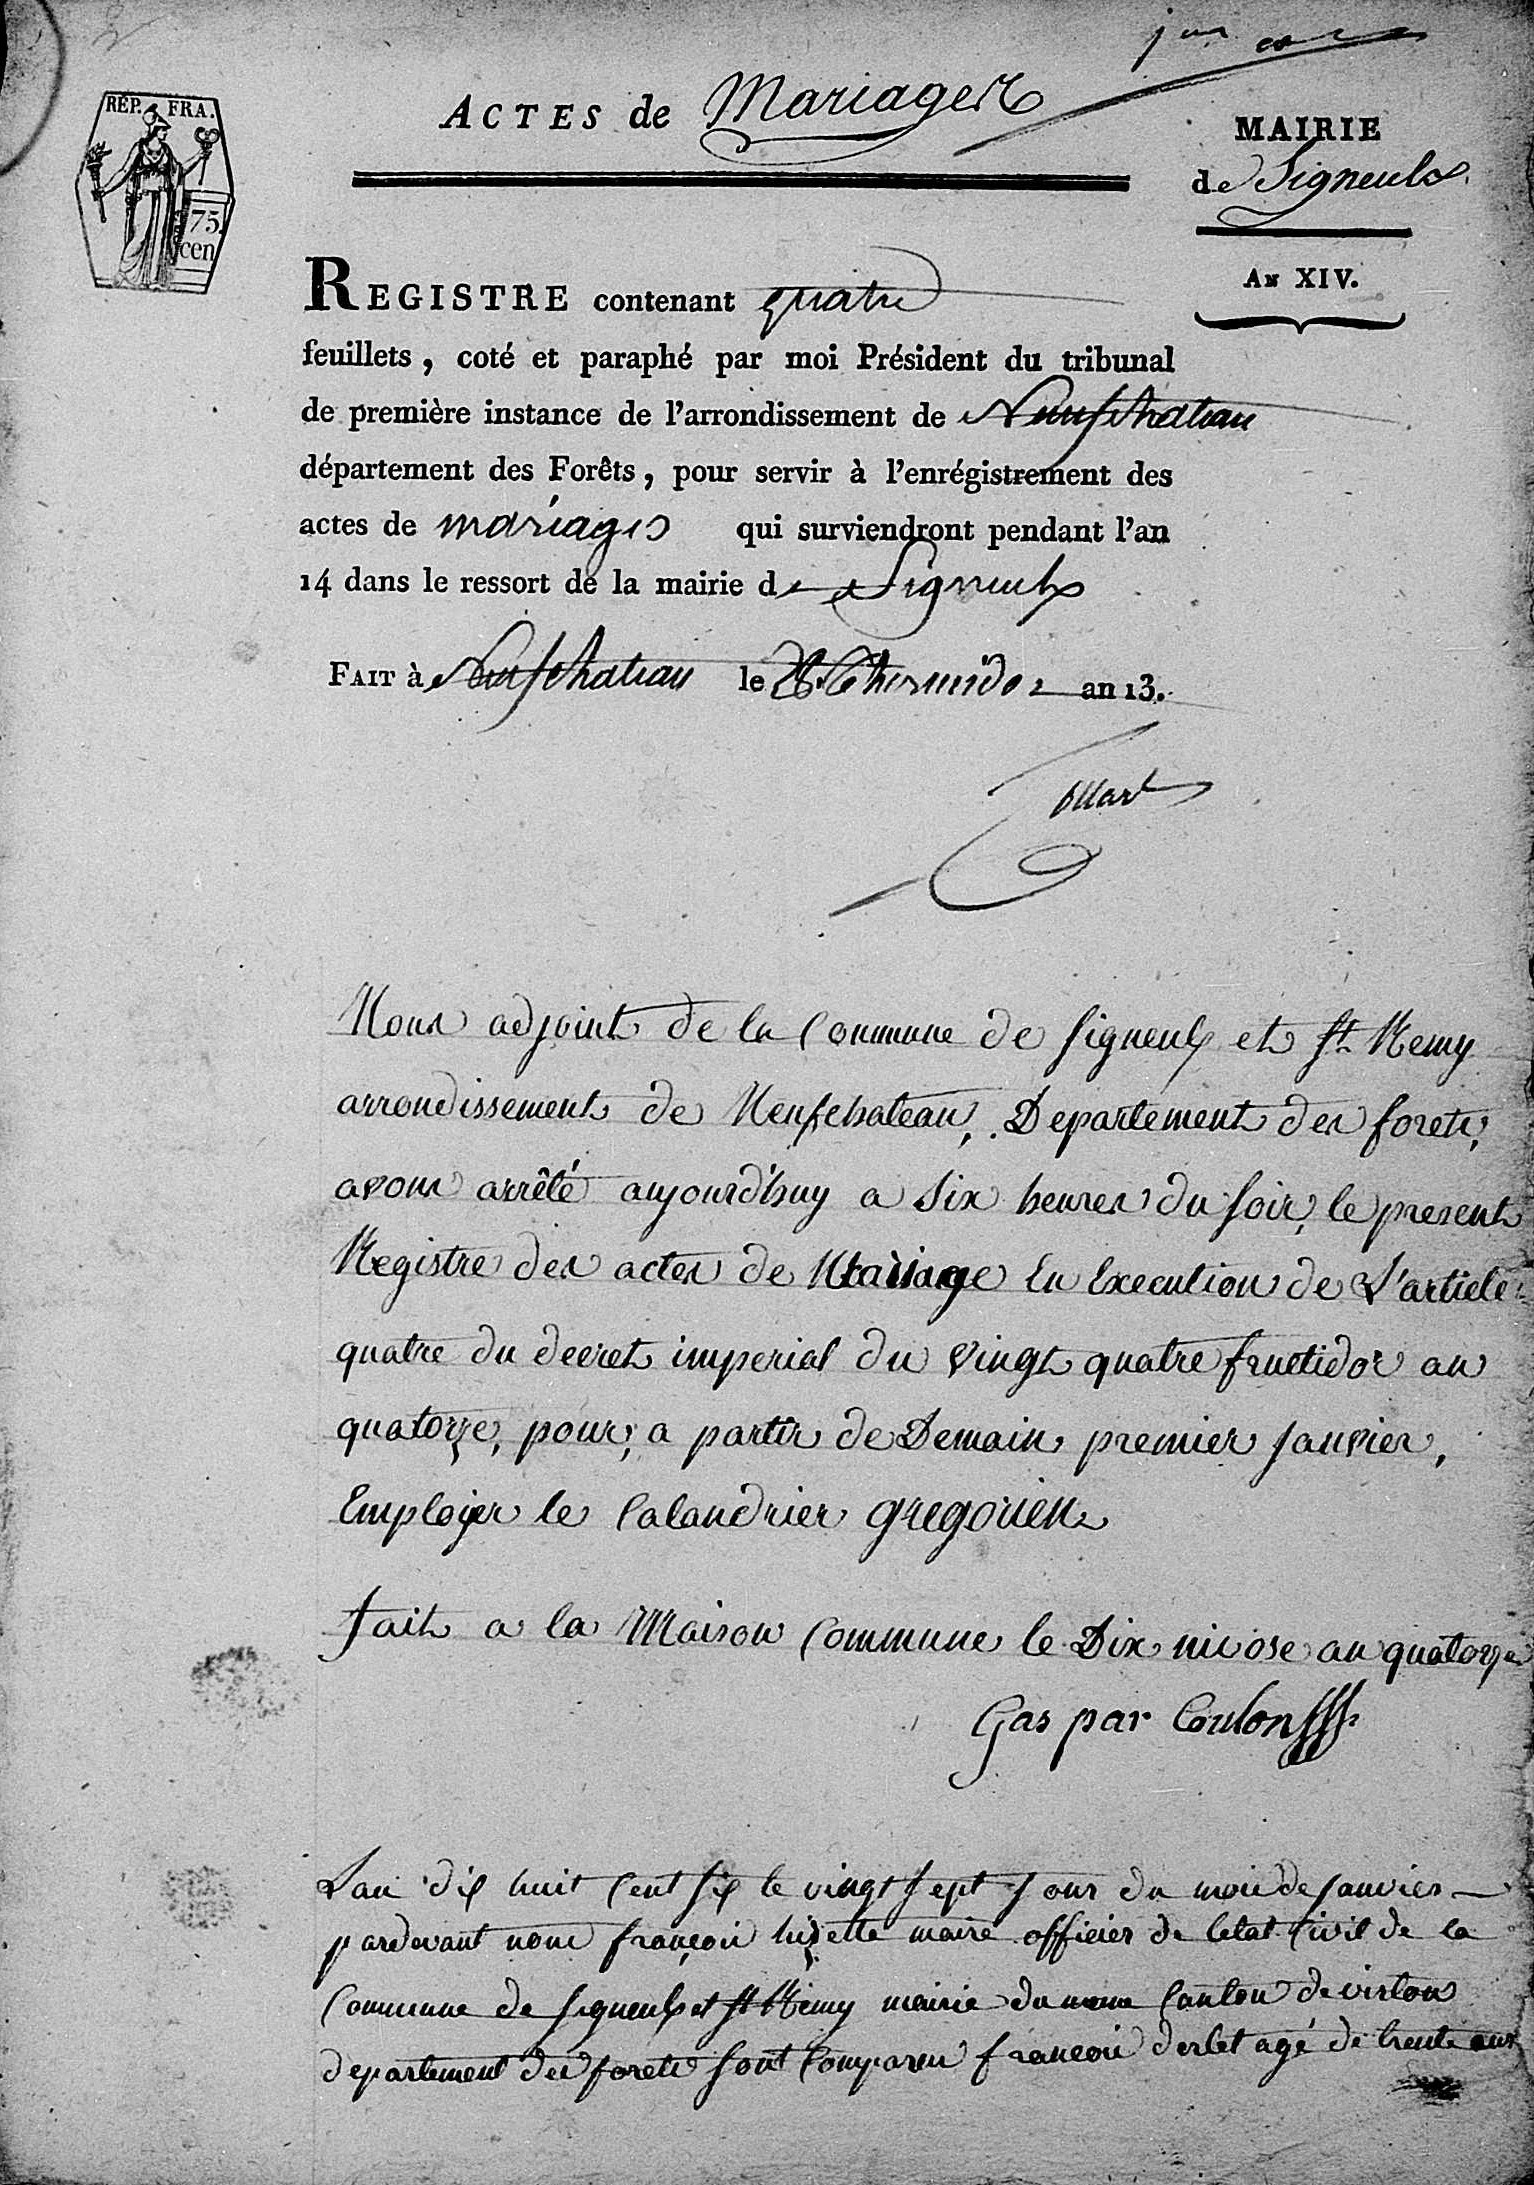 RÉP. FRA.
75.
cen
ACTES de Mariages
MAIRIE
de Signeulx
AN XIV.
REGISTRE contenant quatre
feuillets, coté et paraphé par moi Président du tribunal
de première instance de l'arrondissement de Neufchateau
département des Forêts, pour servir à l'enrégistrement des
actes de mariages qui surviendront pendant l'an
14 dans le ressort de la mairie de Signeulx
FAIT à Neufchateau le thermidor an 13.
Collart
Nous adjoint de la Commune de Signeulx et St. Remy
arrondissement de Neufchateau, Departement des forets,
avons arrêté aujourd'huy a Six heures du Soir, le present
Registre des actes de Mariage En Execution de L'article
quatre du decret imperial du Vingt quatre fructidor an
quatorze, pour, a partir de Demain premier Janvier,
Employer le Calandrier gregorien
Fait a la Maison Commune le Dix nivose an quatorze
Gaspar Coulon
Lan dix huit Cent Six le vingt Sept Jour du mois de Janvier
pardevant nous françois hizette maire officier de letat Civil de la
Commune de Signeulx et St Remy mairie du meme Canton de virton
departement des forets Sont Comparus françois derlet agé de trente ans